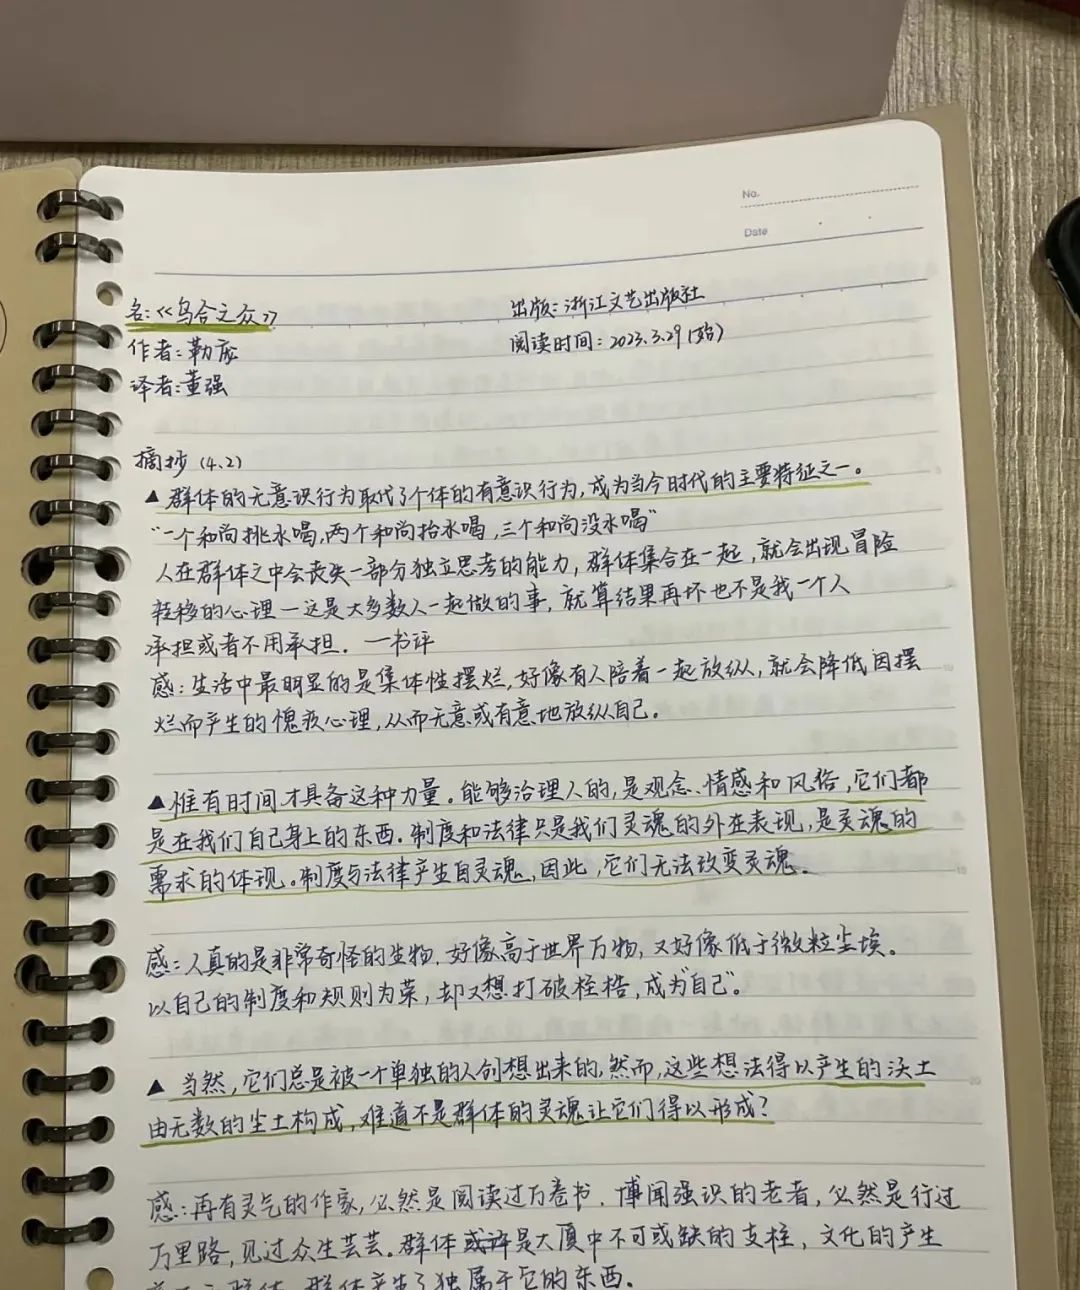 No.
Date
名:《乌合之众》
出版:浙江文艺出版社
作者:勒庞
阅读时间:2023.3.29(始)
译者:董强
摘抄(4.2)
▲群体的无意识行为取代了个体的有意识行为,成为当今时代的主要特征之一。
"一个和尚挑水喝,两个和尚抬水喝,三个和尚没水喝"
人在群体之中会丧失一部分独立思考的能力,群体集合在一起,就会出现冒险
转移的心理—这是大多数人一起做的事,就算结果再坏也不是我一个人
承担或者不用承担. —书评
感:生活中最明显的是集体性摆烂,好像有人陪着一起放纵,就会降低因摆
烂而产生的愧疚心理,从而无意或有意地放纵自己。
▲惟有时间才具备这种力量。能够治理人的,是观念、情感和风俗,它们都
是在我们自己身上的东西。制度和法律只是我们灵魂的外在表现,是灵魂的
需求的体现。制度与法律产生自灵魂,因此,它们无法改变灵魂。
感:人真的是非常奇怪的生物,好像高于世界万物,又好像低于微粒尘埃。
以自己的制度和规则为荣,却又想打破桎梏,成为"自己"。
▲当然,它们总是被一个单独的人创想出来的,然而,这些想法得以产生的沃土
由无数的尘土构成,难道不是群体的灵魂让它们得以形成?
感:再有灵气的作家,必然是阅读过万卷书.博闻强识的老者,必然是行过
万里路,见过众生芸芸。群体或许是大厦中不可或缺的支柱,文化的产生
群体,群体产生了独属于它的东西.